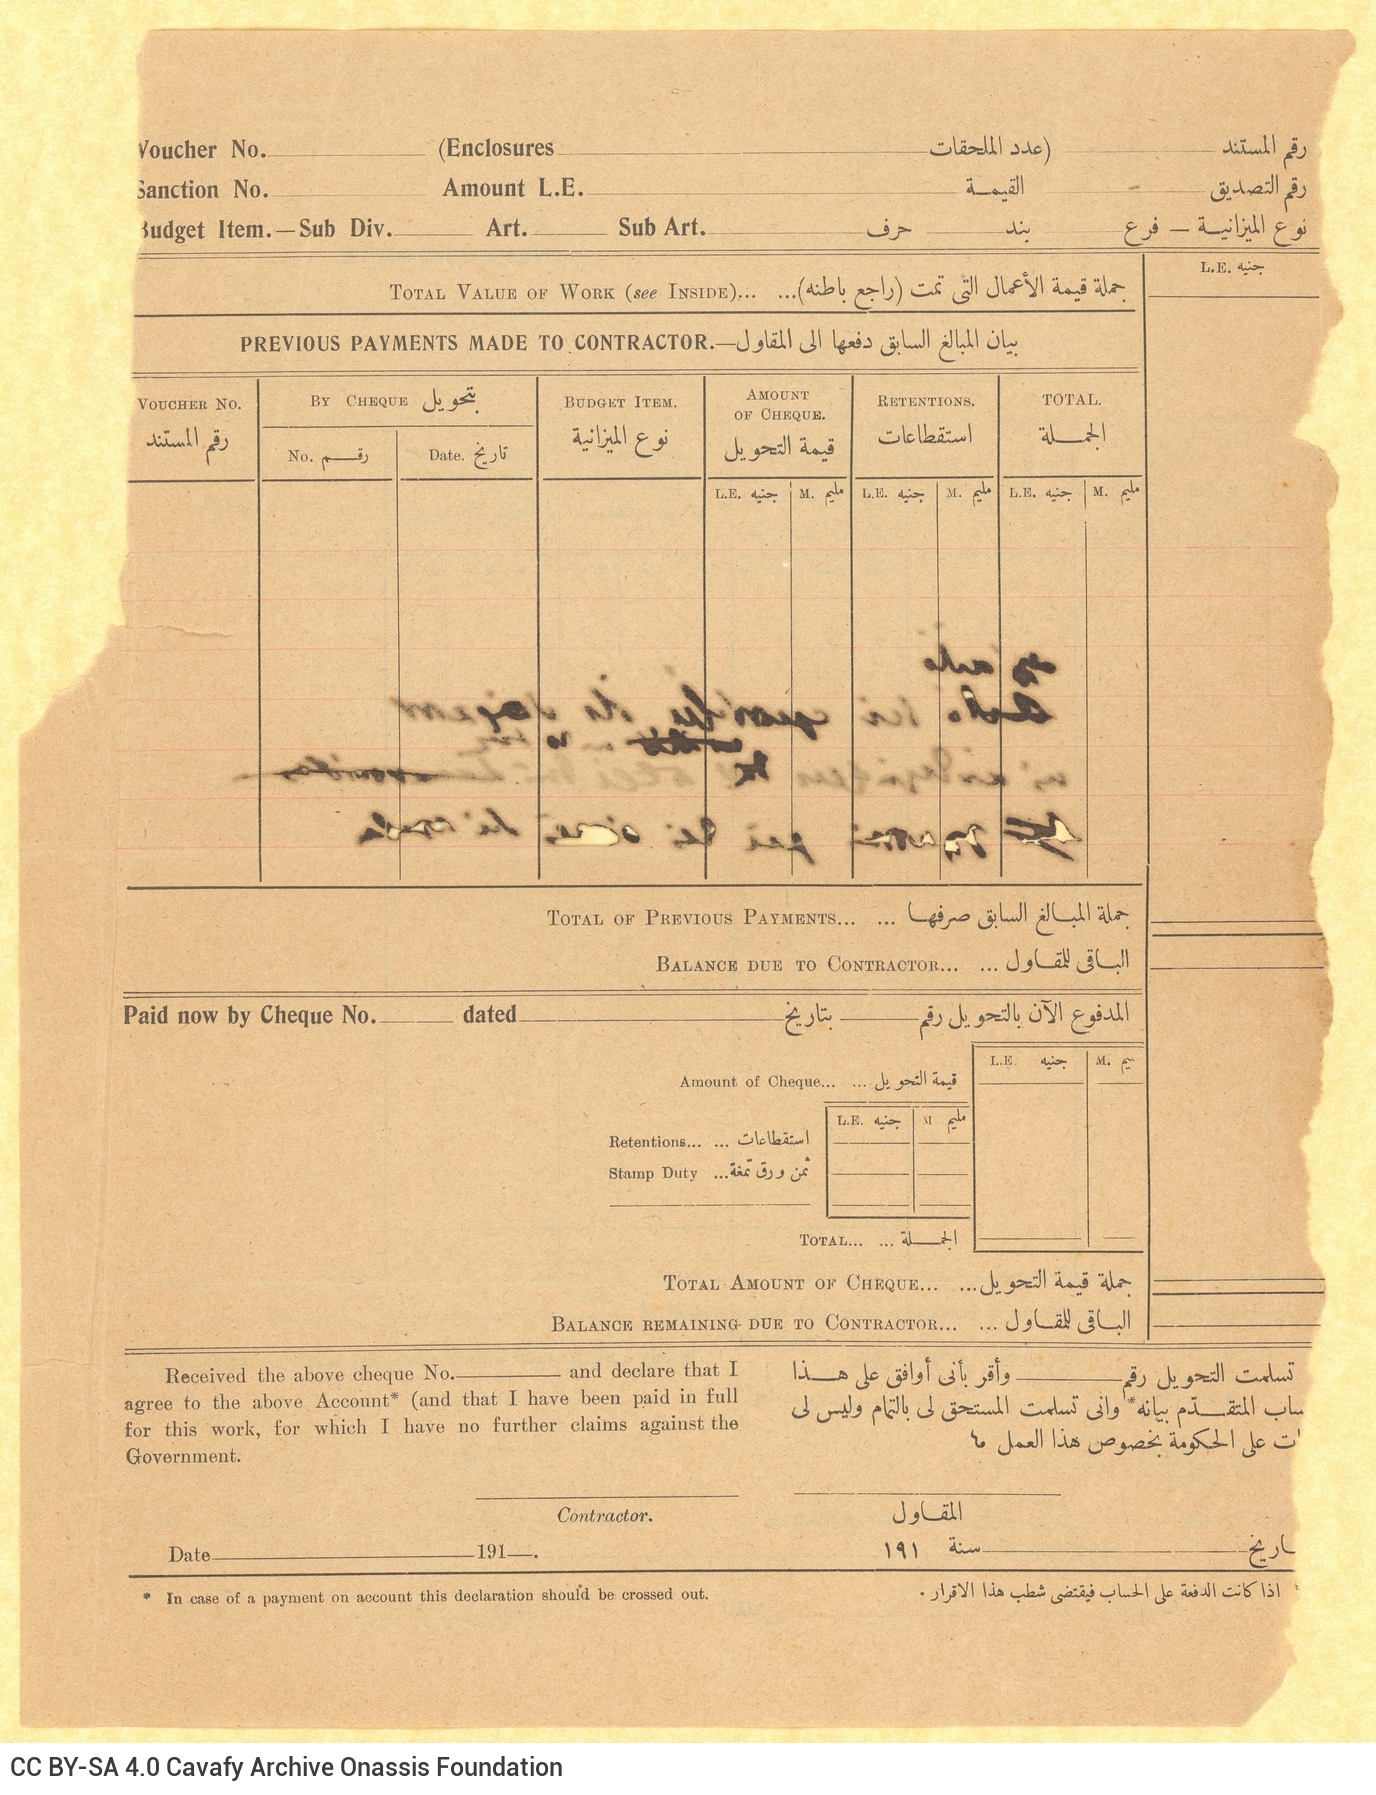 Voucher No. (Enclosures عدد الملحقات) رقم المستند
Sanction No. Amount L.E. القيمة رقم التصديق
Budget Item.—Sub Div. Art. Sub Art. حرف بند نوع الميزانية — فرع
L.E. جنيه
TOTAL VALUE OF WORK (see INSIDE)... ... جملة قيمة الأعمال التى تمت (راجع باطنه)
PREVIOUS PAYMENTS MADE TO CONTRACTOR.—بيان المبالغ السابق دفعها الى المقاول
VOUCHER NO. رقم المستند
BY CHEQUE بتحويل
No. رقم Date. تاريخ
BUDGET ITEM. نوع الميزانية
AMOUNT OF CHEQUE. قيمة التحويل
RETENTIONS. استقطاعات
TOTAL. الجملة
L.E. جنيه M. مليم L.E. جنيه M. مليم L.E. جنيه M. مليم
TOTAL OF PREVIOUS PAYMENTS... ... جملة المبالغ السابق صرفها
BALANCE DUE TO CONTRACTOR... ... الباقى للمقاول
Paid now by Cheque No. dated بتاريخ المدفوع الآن بالتحويل رقم
L.E. جنيه M.
Amount of Cheque... ... قيمة التحويل
L.E. جنيه M مليم
Retentions... ... استقطاعات
Stamp Duty ...ثمن ورق تمغة
TOTAL... ... الجملة
TOTAL AMOUNT OF CHEQUE... ...جملة قيمة التحويل
BALANCE REMAINING DUE TO CONTRACTOR... ... الباقى للمقاول
Received the above cheque No. and declare that I
agree to the above Account* (and that I have been paid in full
for this work, for which I have no further claims against the
Government.
تسلمت التحويل رقم وأقر بأنى أوافق على هذا
ساب المتقدّم بيانه* وانى تسلمت المستحق لى بالتمام وليس لى
ات على الحكومة بخصوص هذا العمل
Contractor. المقاول
Date 191 . اريخ سنة ١٩١
* In case of a payment on account this declaration should be crossed out.
اذا كانت الدفعة على الحساب فيقتضى شطب هذا الاقرار .
CC BY-SA 4.0 Cavafy Archive Onassis Foundation